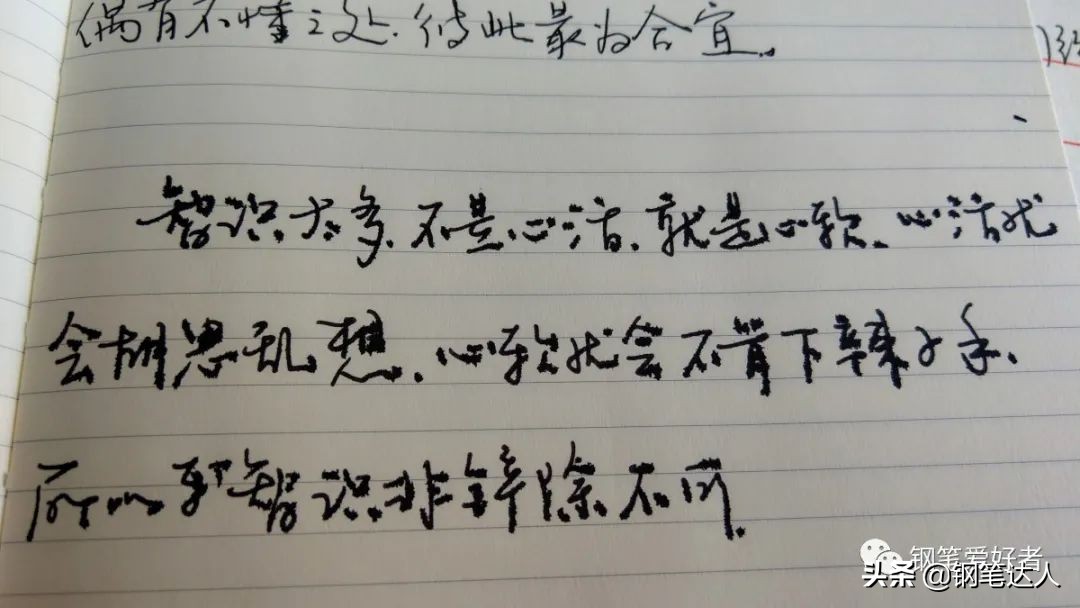 偶有不懂之处,彼此最为合宜。
智识太多,不是心活,就是心软。心活就
会胡思乱想,心软就会不肯下辣手。
所以智识非铲除不可。
钢笔爱好者
头条 @钢笔达人